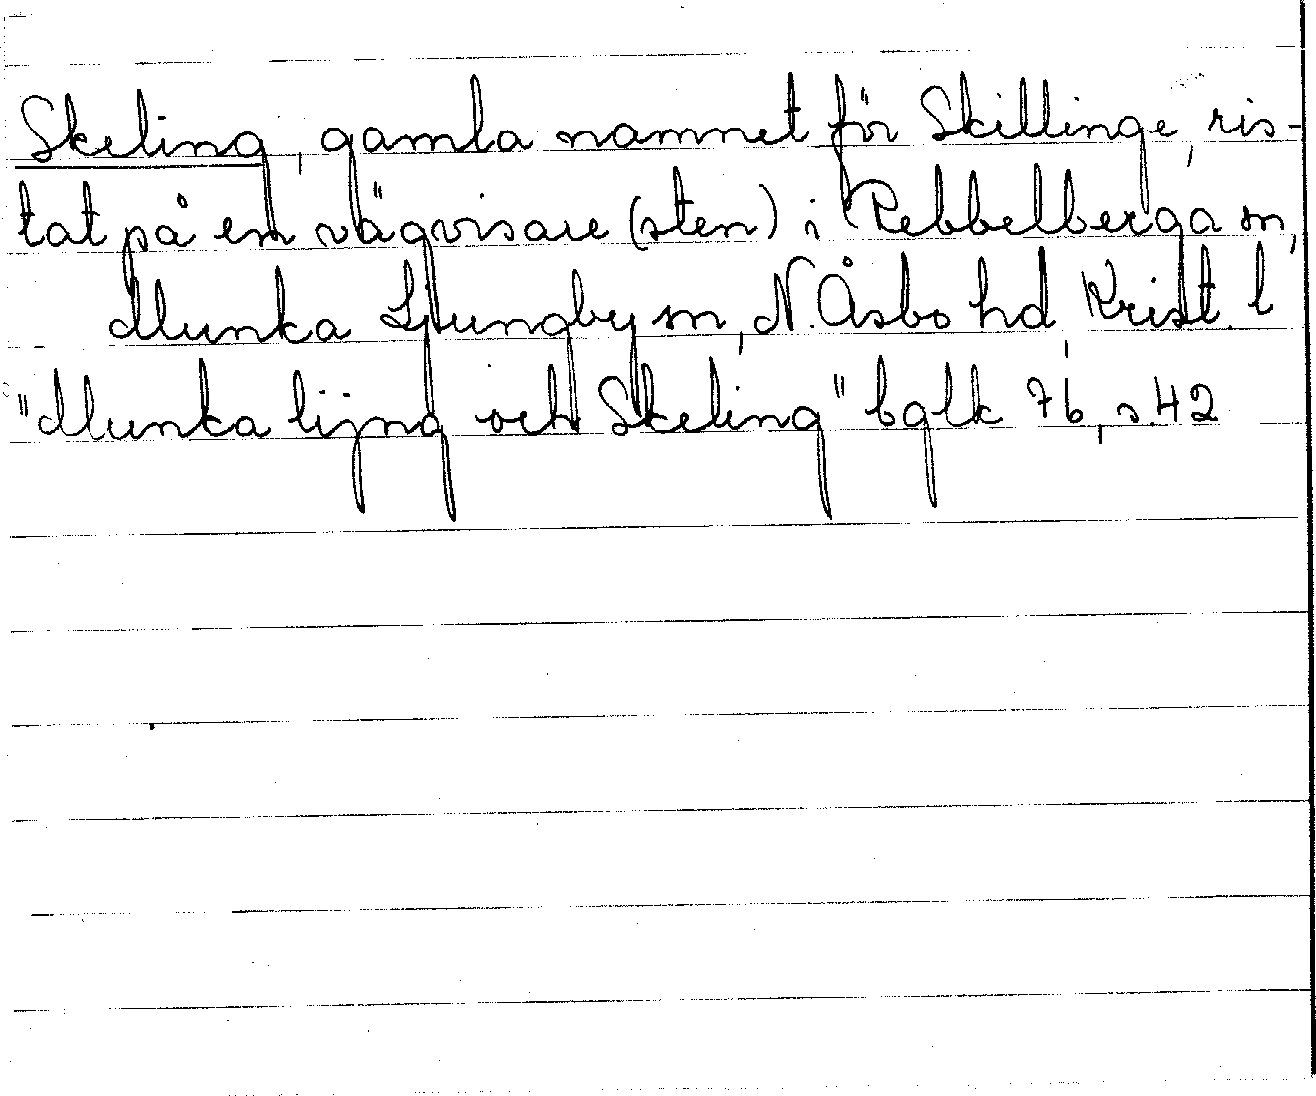 Skeling, gamla namnet för Skillinge, ris-
tat på en vägvisare (sten) i Rebbelberga sn,
Munka Ljungby sn, N. Åsbo hd, Krist. l
"Munka lijng och Skeling" bglk 76, s. 42